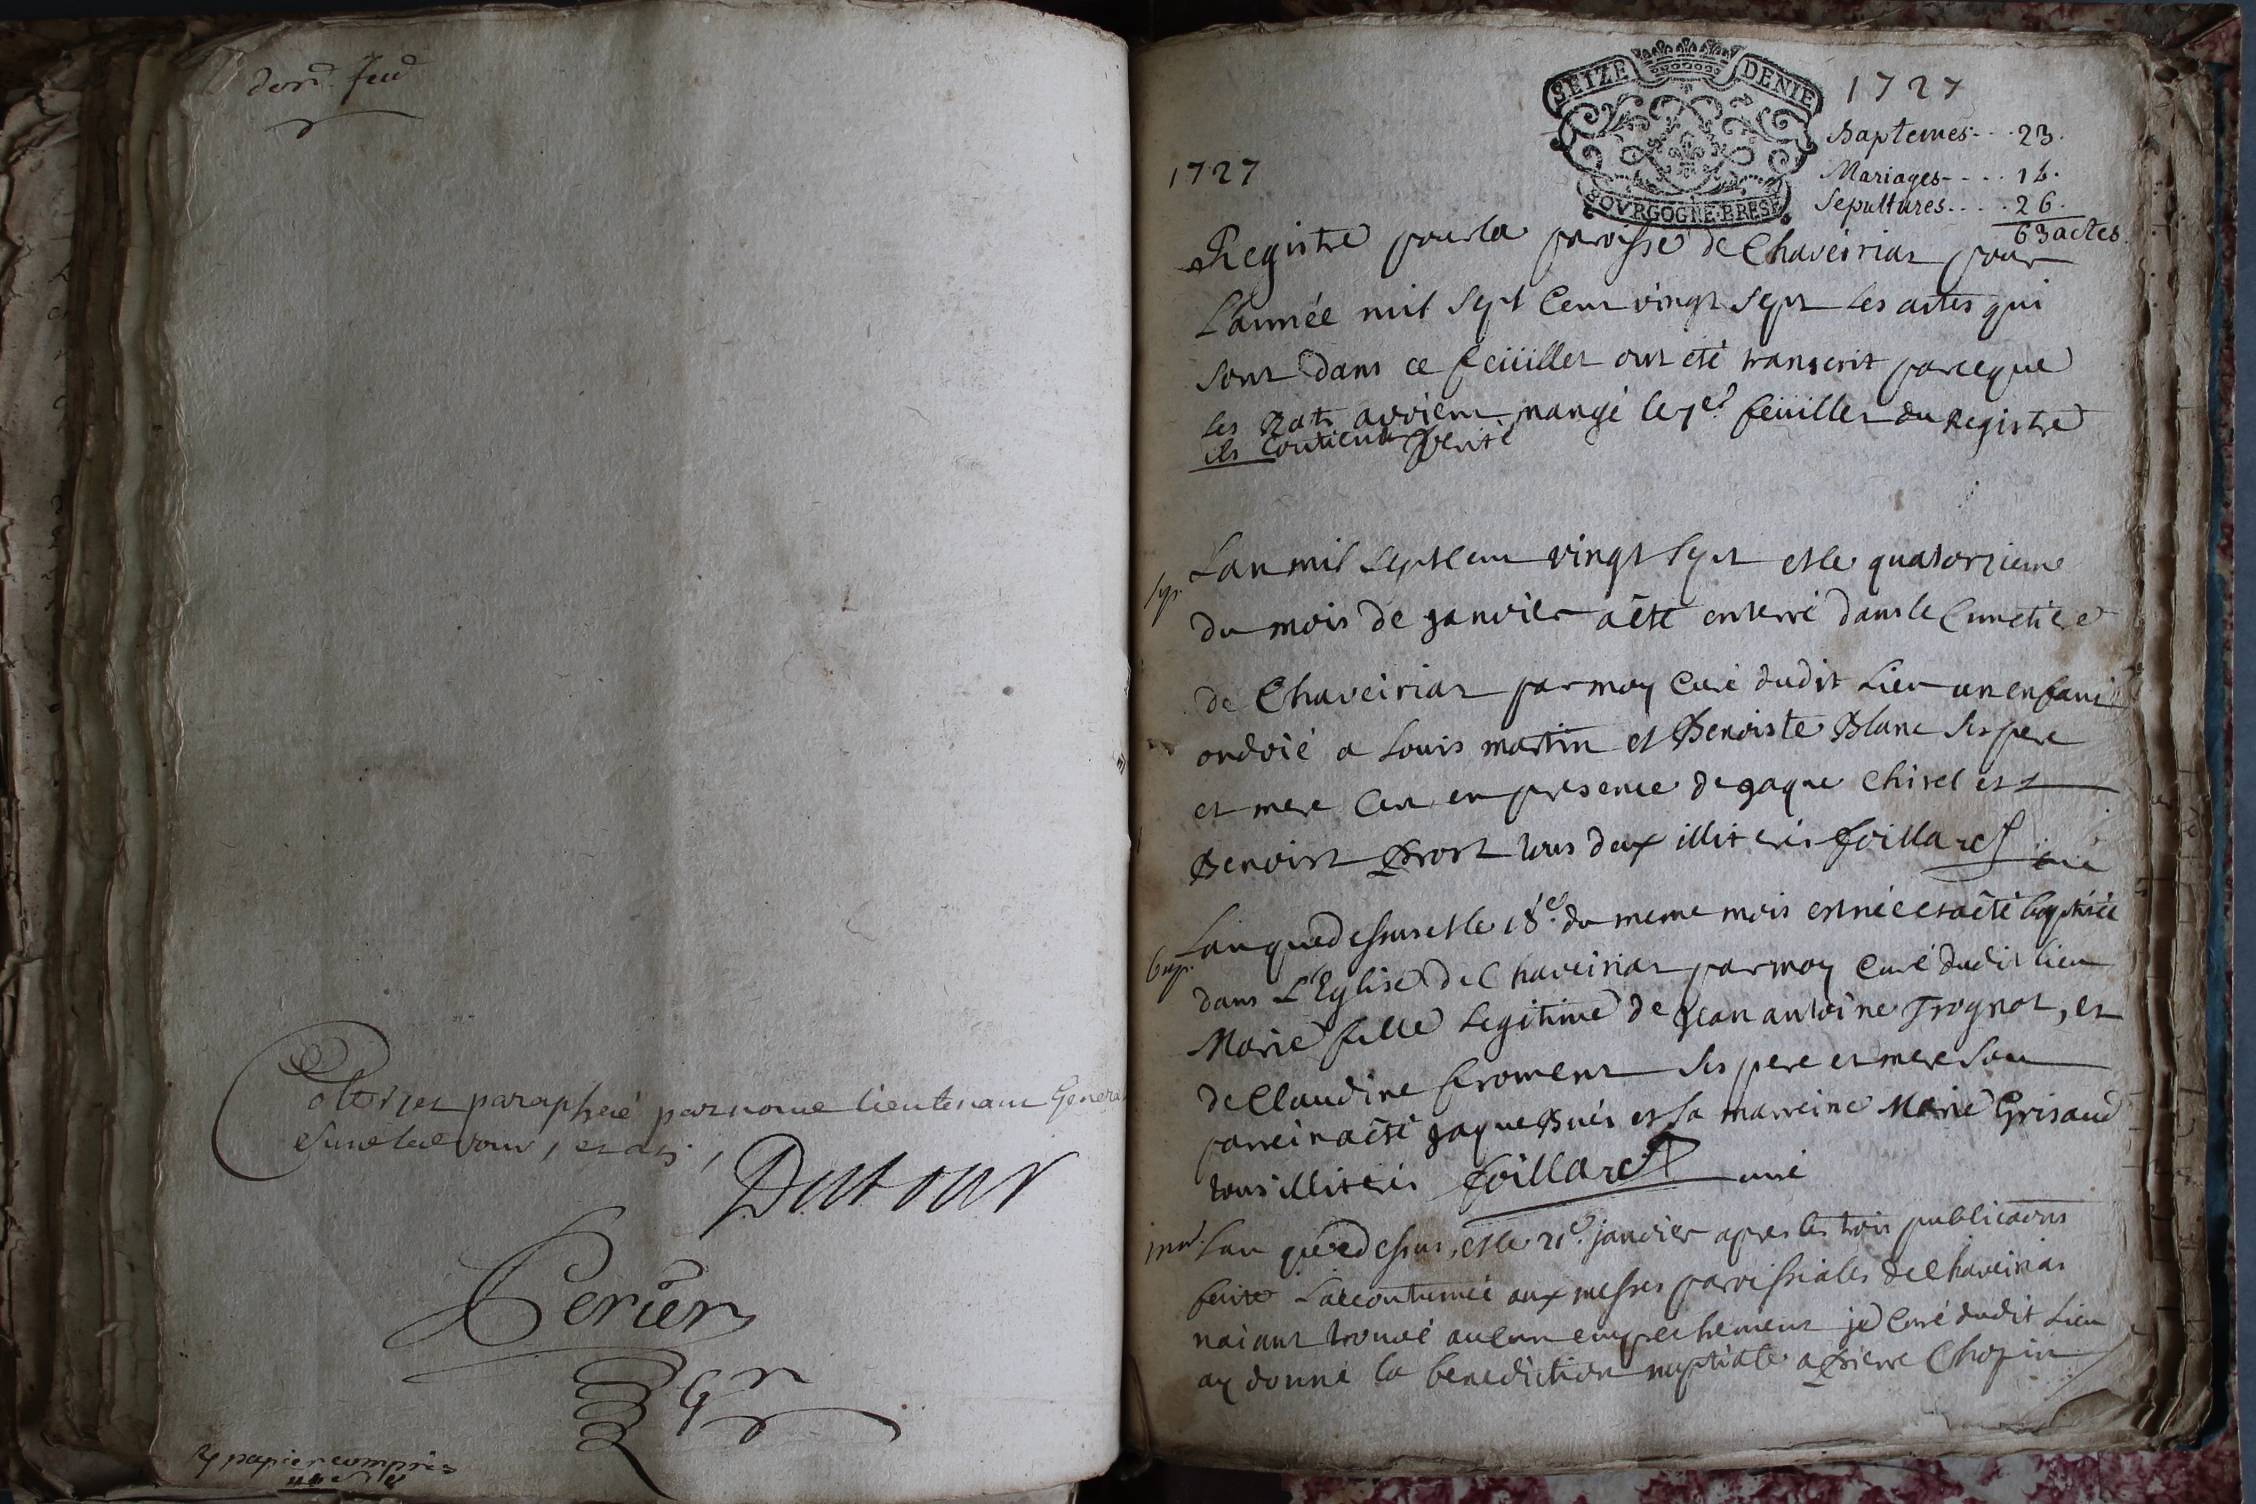 Cotté et paraphé par nous lieutenant General
Dutour
Perier
Gr
papier compris
SEIZE DENIE
BOVRGOGNE·BRESE
1727
Baptemes - - - 23.
Mariages - - - - 14.
Sepultures - - - - 26.
63 actes
1727
Registre pour la paroisse de Chaveiriat pour
L'année mil sept Cent vingt sept les actes qui
sont dans ce feüillet ont été transcrit parceque
les Rats avoient mangé le 1er feüillet du Registre
ils contient verité
sep. Lan mil sept Cent vingt sept et le quatorzieme
du mois de janvier a été enterré dans le Cimetiere
de Chaveiriat par moy Curé dudit Lieu un enfant
ondoié a Louis martin et Benoiste Blanc ses pere
et mere Ceci en presence de jaque Chirel et
Benoist Prost tous deux illiterés foillard curé
bap. Lan que dessus et le 18e du meme mois est née et a été baptisée
dans L'Eglise de Chaveiriat par moy Curé dudit lieu
Marie fille legitime de jean antoine Trognot, et
de Claudine froment ses pere et mere son
parrein a été jaque Buis et sa marreine Marie Grisaud
tous illiterés foillard curé
mar. Lan que dessus, et le 21e janvier apres les trois publications
faite L'accoutumée aux messes paroissiales de Chaveiriat
naiant trouvé aucun empechement je Curé dudit Lieu
ay donné la benediction nuptiale a Pierre Chopin